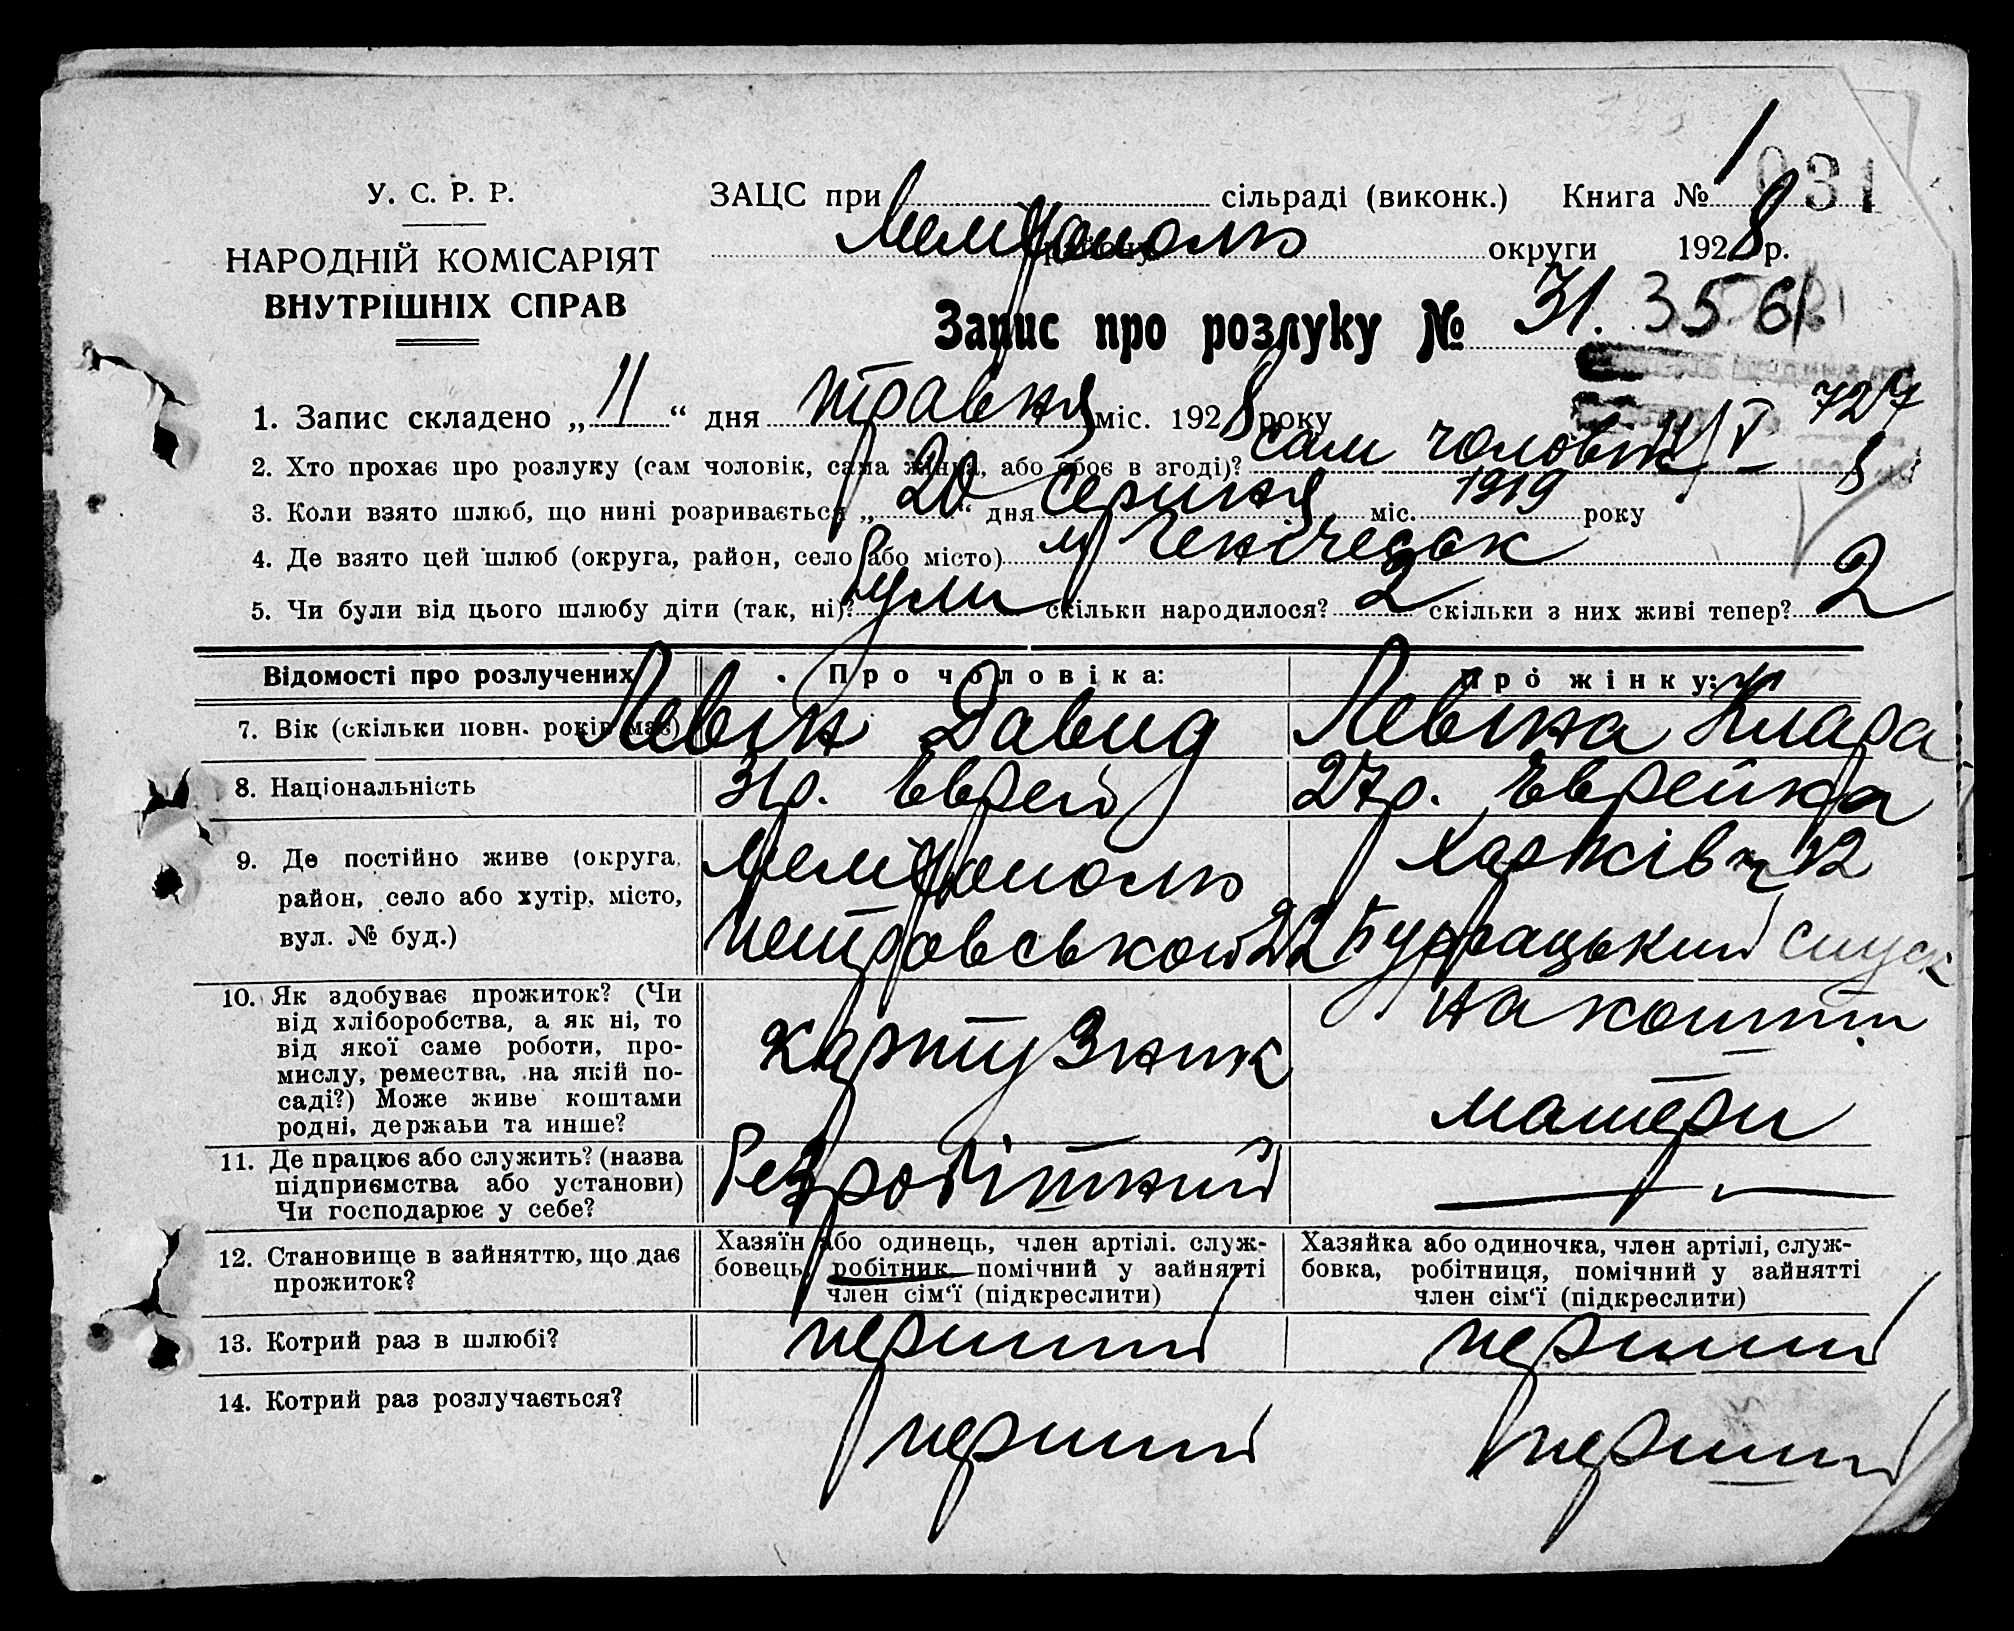 У. С. Р. Р.
НАРОДНІЙ КОМІСАРІЯТ
ВНУТРІШНІХ СПРАВ
ЗАЦС при сільраді (виконк.) Книга № 1 931
Мелітополь округи 1928 р.
Запис про розлуку № 31. 3561
1. Запис складено „11“ дня травня міс. 1928 року
727
2. Хто прохає про розлуку (сам чоловік, сама жінка, або обоє в згоді)? сам чоловік
3. Коли взято шлюб, що нині розривається „20“ дня серпня міс. 1919 року
4. Де взято цей шлюб (округа, район, село або місто) м Генічеськ
5. Чи були від цього шлюбу діти (так, ні)? були скільки народилося? 2 скільки з них живі тепер? 2
Відомості про розлучених Про чоловіка: Про жінку:
7. Вік (скільки повн. років має) Левін Давид Левіна Клара
8. Національність 31р. Еврей 27р. Еврейка
9. Де постійно живе (округа, район, село або хутір, місто, вул. № буд.)
Мелітополь Харків 12
Петровської 22 Бурсацький спуск
10. Як здобуває прожиток? (Чи
від хліборобства, а як ні, то
від якої саме роботи, про-
мислу, ремества, на якій по-
саді?) Може живе коштами
родні, держави та инше?
картузник на кошти
матери
11. Де працює або служить? (назва
підприємства або установи)
Чи господарює у себе?
безробітний —
12. Становище в зайняттю, що дає
прожиток?
Хазяїн або одинець, член артілі. служ-
бовець, робітник, помічний у зайнятті
член сім'ї (підкреслити)
Хазяйка або одиночка, член артілі, служ-
бовка, робітниця, помічний у зайнятті
член сім'ї (підкреслити)
13. Котрий раз в шлюбі? перший перший
14. Котрий раз розлучається? перший перший